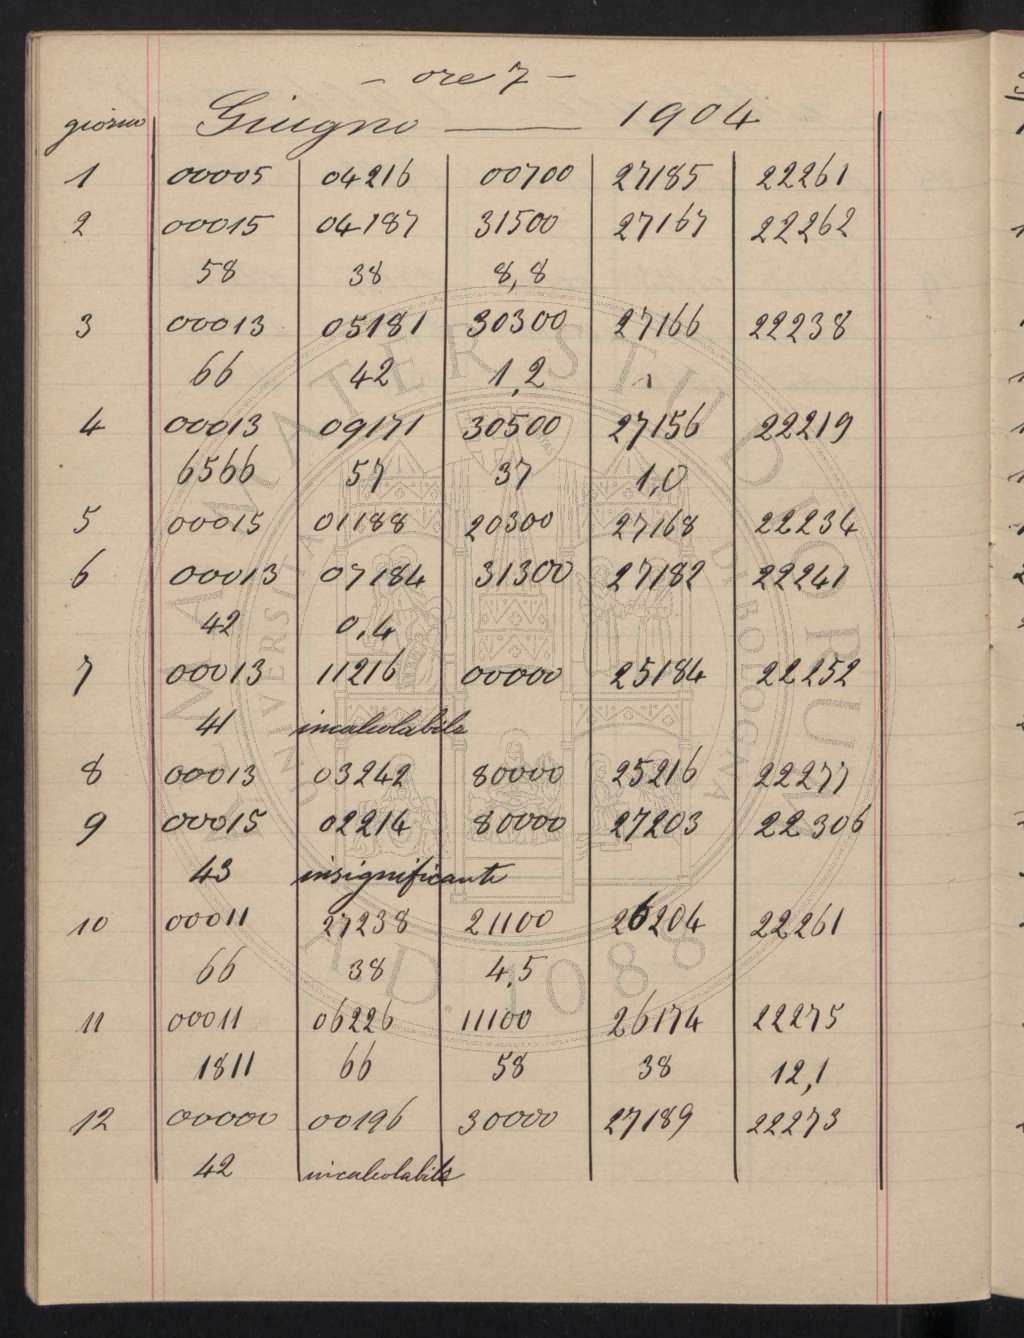 - ore 7 -
giorno Giugno — 1904
1 00005 04216 00700 27185 22261
2 00015 04187 31500 27167 22262
58 38 8,8
3 00013 05181 30300 27166 22238
66 42 1,2
4 00013 09171 30500 27156 22219
6566 57 37 1,0
5 00015 01188 20300 27168 22234
6 00013 07184 31300 27182 22241
42 0,4
7 00013 11216 00000 25184 22252
41 incalcolabile
8 00013 03242 80000 25216 22277
9 00015 02214 80000 27203 22306
43 insignificante
10 00011 27238 21100 26204 22261
66 38 4,5
11 00011 06226 11100 26174 22275
1811 66 58 38 12,1
12 00000 00196 30000 27189 22273
42 incalcolabile
ALMA MATER STUDIORUM
UNIVERSITA DI BOLOGNA
A.D. 1088